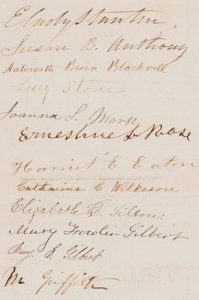 E Cady Stanton,
Susan B. Anthony
Antoinette Brown Blackwell
Lucy Stone
Joanna S. Morse
Ernestine L Rose
Harriet E. Eaton
Catharine C Wilkeson
Elizabeth R. Tilton
Mary Fowler Gilbert
Mary E. Gilbert
M Griffith